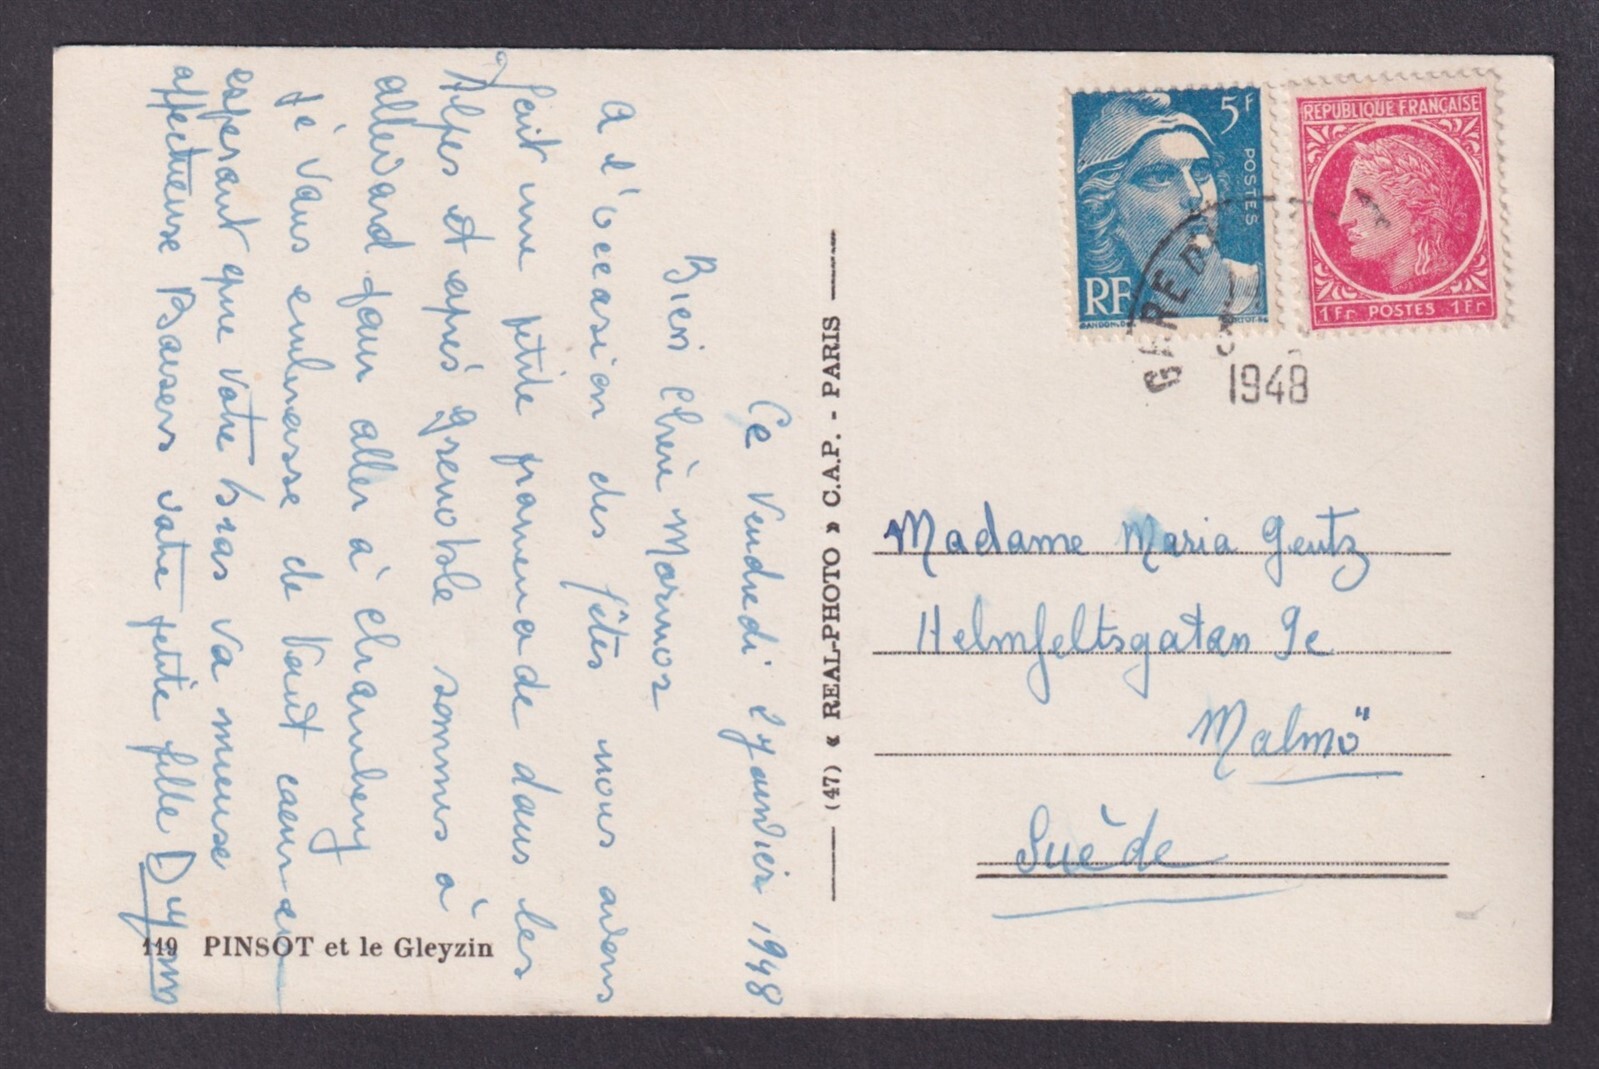 Ce Vendredi 2 Janvier 1948
Bien Chère Mormor
a l'occasion des fêtes nous avons
fait une petite promenade dans les
Alpes et après grenoble sommes à
allevard pour aller à Chambery
Je vous embrasse de tout coeur en
esperant que votre bras va mieux
affectueuse Baisers votre petite fille
119 PINSOT et le Gleyzin
(47) « REAL-PHOTO » C.A.P. - PARIS
5F
POSTES
RF
REPUBLIQUE FRANÇAISE
1Fr POSTES 1Fr
GARE D
1948
Madame Maria Gentz
Helmfeltsgatan 9e
Malmö
Suède